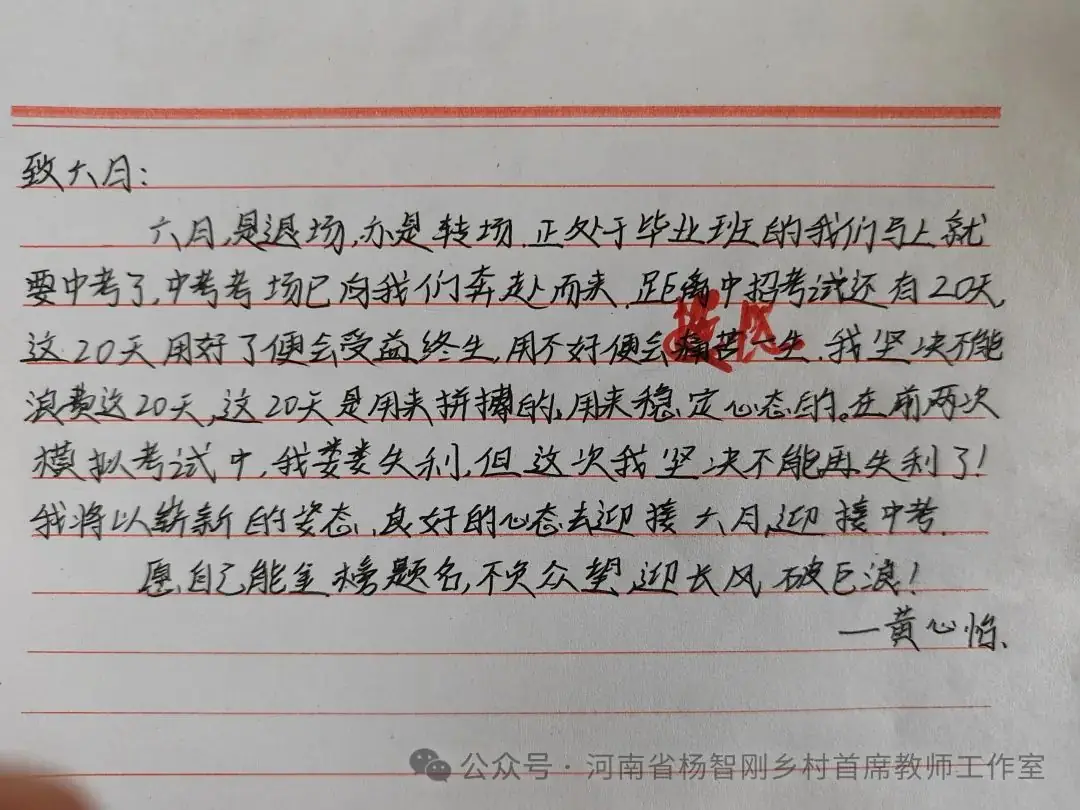 致六月：
六月，是退场，亦是转场．正处于毕业班的我们马上就
要中考了，中考考场已向我们奔赴而来．距离中招考试还有20天，
这20天用好了便会受益终生，用不好便会痛苦一生．我坚决不能
遗憾
浪费这20天，这20天是用来拼搏的，用来稳定心态的。在前两次
模拟考试中，我娄娄失利，但这次我坚决不能再失利了！
我将以崭新的姿态、良好的心态去迎接六月，迎接中考．
愿自己能金榜题名，不负众望，迎长风破巨浪！
—黄心怡、
公众号·河南省杨智刚乡村首席教师工作室